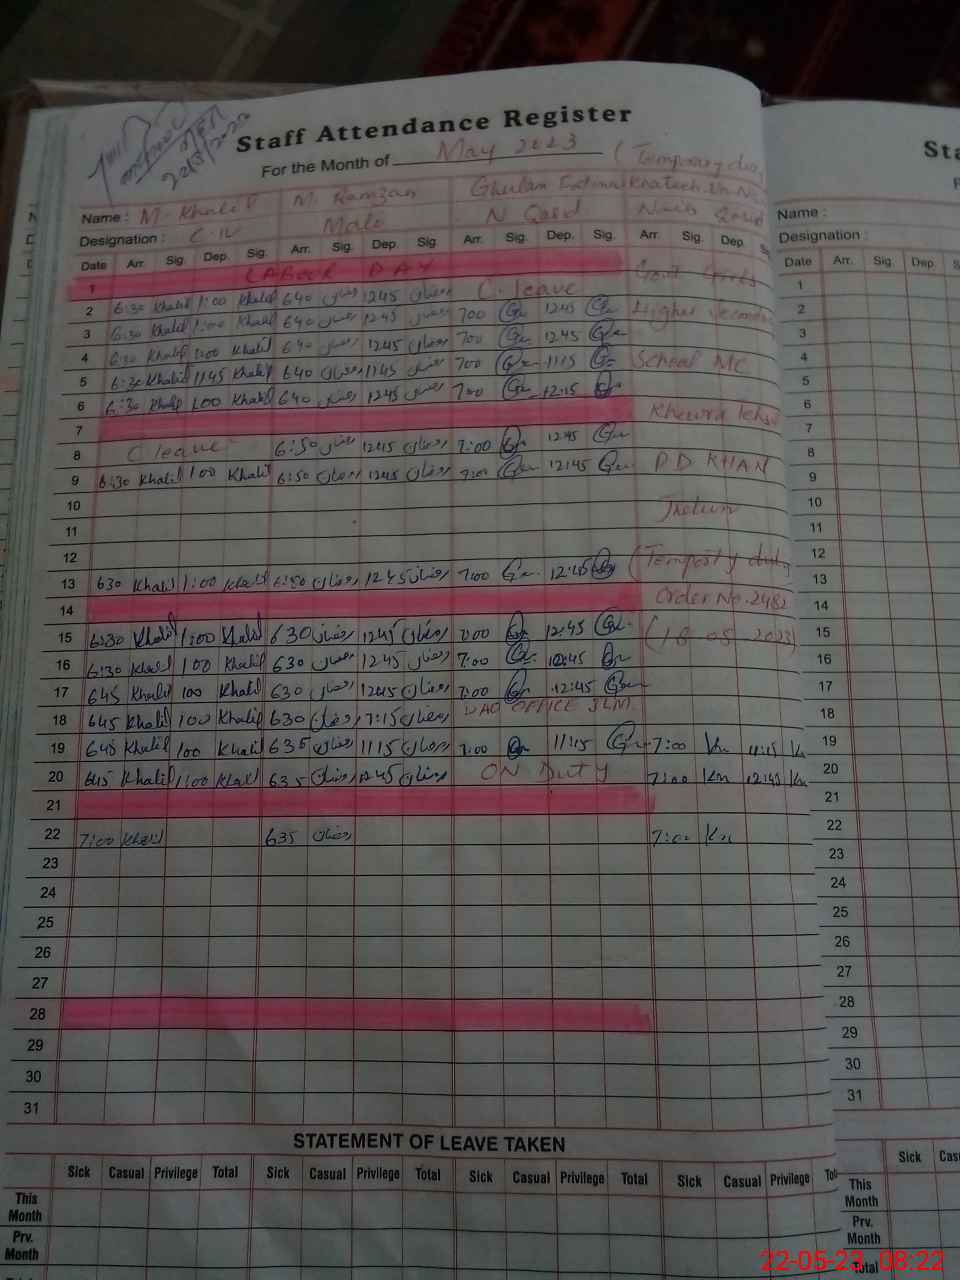 22/5/2023
Staff Attendance Register
For the Month of May 2023 (Temporary duty
Name : M. Khalil M. Ramzan Ghulam Khateeb
Designation : C-IV Mali N Qasid Naib Qasid
Date Arr. Sig. Dep. Sig. Arr. Sig. Dep. Sig. Arr. Sig. Dep. Sig. Arr. Sig. Dep.
1 LABOUR DAY Govt Girls
2 6:30 Khalil 1:00 Khalil 640 رمضان 1245 رمضان C. leave
3 6:30 Khalil 1:00 Khalil 640 رمضان 1245 رمضان 700 12:45 Higher Secondary
4 6:30 Khalil 1:00 Khalil 640 رمضان 1245 رمضان 700 12:45
5 6:30 Khalil 1145 Khalil 640 رمضان 1145 رمضان 700 11:15 School MC
6 6:30 Khalil 100 Khalil 640 رمضان 1245 رمضان 700 12:15
7 Khewra Tehsil
8 C leave 6:50 رمضان 1245 رمضان 7:00 12:45
9 6:30 Khalil 1:00 Khalil 6:50 رمضان 1245 رمضان 7:00 12:45 P D KHAN
10
11 Jhelum
12
13 630 Khalil 1:00 Khalil 6:50 رمضان 1245 رمضان 7:00 12:45 (Temporary duty
14 Order No. 2482
15 6:30 Khalil 1:00 Khalil 630 رمضان 1245 رمضان 7:00 12:45 (18-05-2023)
16 6:30 Khalil 100 Khalil 630 رمضان 1245 رمضان 7:00 12:45
17 645 Khalil 100 Khalil 630 رمضان 1245 رمضان 7:00 12:45
18 645 Khalil 100 Khalil 630 رمضان رمضان OFFICE JLM
19 645 Khalil 100 Khalil 635 رمضان 1115 رمضان 7:00 11:15 7:00 Kn 11:15 Kn
20 645 Khalil 1:00 Khalil 635 رمضان 1245 رمضان ON Duty 7:00 Kn 12:45 Kn
21
22 7:00 Khalil 635 رمضان 7:00 Kn
23
24
25
26
27
28
29
30
31
STATEMENT OF LEAVE TAKEN
Sick Casual Privilege Total Sick Casual Privilege Total Sick Casual Privilege Total Sick Casual Privilege
This Month
Prv. Month
Name :
Designation :
Date Arr. Sig. Dep.
1
2
3
4
5
6
7
8
9
10
11
12
13
14
15
16
17
18
19
20
21
22
23
24
25
26
27
28
29
30
31
Sick
This Month
Prv. Month
Total
22-05-23 08:22